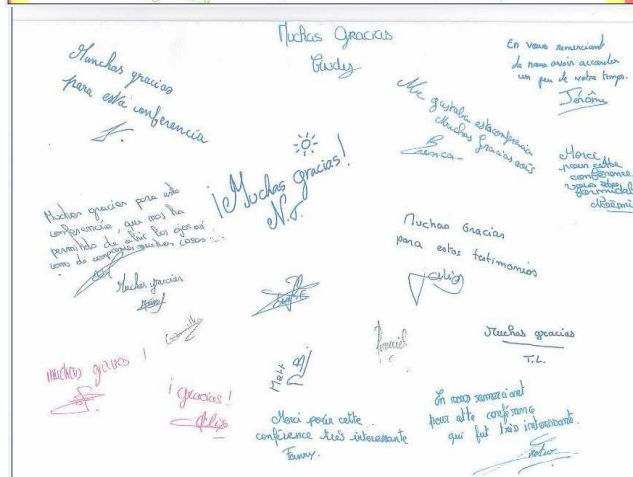 Muchas Gracias
Cindy
Munchas gracias
para esta conferencia
En vous remerciant
de nous avoir accorder
un peu de votre temps.
Jérôme
Me gustaba esta conferencia
Muchas gracias
¡Muchas gracias!
N.J.
Merci
pour cette
conférence,
vous êtes
formidable
Muchas gracias para esta
conferencia, que nos ha
permitido de abrir los ojos así
como de comprender muchas cosas...
Muchas Gracias
para estos testimonios
Muchas gracias
Muchas gracias
T.L.
muchas gracias !
¡ gracias !
Alix
Matt
Merci pour cette
conférence très intéressante
Fanny.
En vous remerciant
pour cette conférence
qui fut très intéressante.